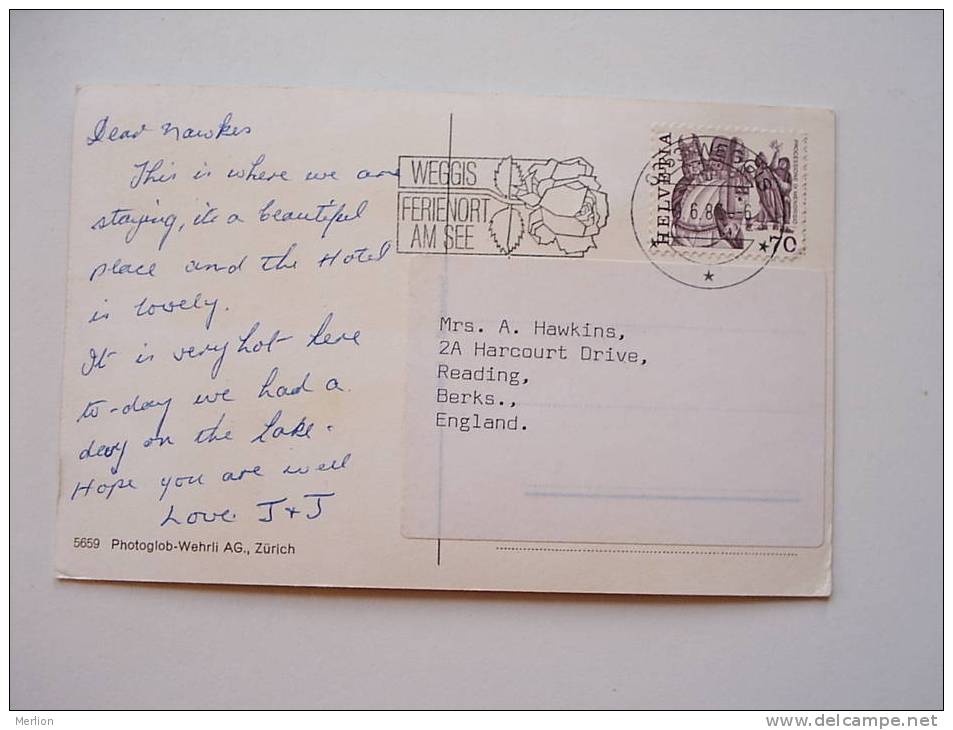 Dear Hawkes
This is where we are
staying, its a beautiful
place and the Hotel
is lovely.
It is very hot here
to-day we had a
day on the Lake.
Hope you are well
Love J + J
5659 Photoglob-Wehrli AG., Zürich
WEGGIS
FERIENORT
AM SEE
WEGGIS
HELVETIA
70
Mrs. A. Hawkins,
2A Harcourt Drive,
Reading,
Berks.,
England.
Merlion
www.delcampe.net